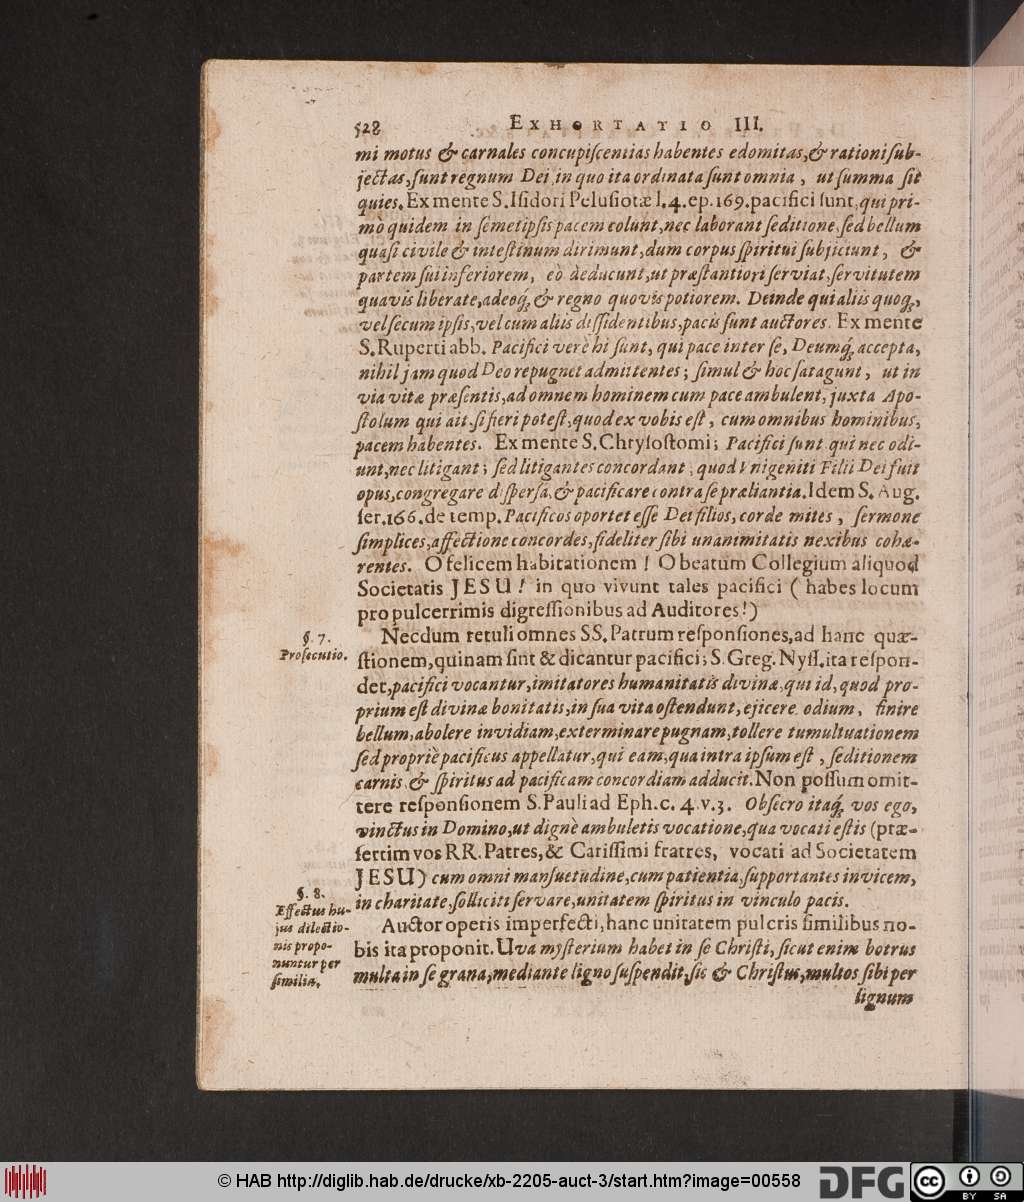 528 EXHORTATIO III.
mi motus & carnales concupiſcentias habentes edomitas, & rationi ſub-
jectas, ſunt regnum Dei in quo ita ordinata ſunt omnia, ut ſumma ſit
quies. Ex mente S. Iſidori Peluſiotæ l. 4. ep. 169. pacifici ſunt, qui pri-
mò quidem in ſemetipſis pacem colunt, nec laborant ſeditione, ſed bellum
quaſi civile & inteſtinum dirimunt, dum corpus ſpiritui ſubjiciunt, &
partem ſui inferiorem, eò deducunt, ut præſtantiori ſerviat, ſervitutem
quavis liberate, adeoq; & regno quovis potiorem. Deinde qui aliis quoq;,
vel ſecum ipſis, vel cum aliis diſſidentibus, pacis ſunt auctores. Ex mente
S. Ruperti abb. Pacifici verè hi ſunt, qui pace inter ſe, Deumq; accepta,
nihil jam quod Deo repugnet admittentes; ſimul & hoc ſatagunt, ut in
via vitæ præſentis, ad omnem hominem cum pace ambulent, juxta Apo-
ſtolum qui ait, ſi fieri poteſt, quod ex vobis eſt, cum omnibus hominibus,
pacem habentes. Ex mente S. Chryſoſtomi; Pacifici ſunt qui nec odi-
unt, nec litigant; ſed litigantes concordant, quod Vnigeniti Filii Dei fuit
opus, congregare diſperſa, & pacificare contra ſe præliantia. Idem S. Aug.
ſer. 166. de temp. Pacificos oportet eſſe Dei filios, corde mites, ſermone
ſimplices, affectione concordes, fideliter ſibi unanimitatis nexibus cohæ-
rentes. O felicem habitationem! O beatum Collegium aliquod
Societatis JESU! in quo vivunt tales pacifici (habes locum
pro pulcerrimis digreſſionibus ad Auditores!)
§. 7.
Proſecutio.
Necdum retuli omnes SS. Patrum reſponſiones, ad hanc quæ-
ſtionem, quinam ſint & dicantur pacifici; S. Greg. Nyſſ. ita reſpon-
det, pacifici vocantur, imitatores humanitatis divinæ, qui id, quod pro-
prium eſt divinæ bonitatis, in ſua vita oſtendunt, ejicere odium, finire
bellum, abolere invidiam, exterminare pugnam, tollere tumultuationem
ſed propriè pacificus appellatur, qui eam, qua intra ipſum eſt, ſeditionem
carnis & ſpiritus ad pacificam concordiam adducit. Non poſſum omit-
tere reſponſionem S. Pauli ad Eph. c. 4. v. 3. Obſecro itaq; vos ego,
vinctus in Domino, ut dignè ambuletis vocatione, qua vocati eſtis (præ-
ſertim vos RR. Patres, & Cariſſimi fratres, vocati ad Societatem
JESU) cum omni manſuetudine, cum patientia, ſupportantes invicem,
in charitate, ſolliciti ſervare, unitatem ſpiritus in vinculo pacis.
§. 8.
Effectus hu-
jus dilectio-
nis propo-
nuntur per
ſimilia.
Auctor operis imperfecti, hanc unitatem pulcris ſimilibus no-
bis ita proponit. Uva myſterium habet in ſe Chriſti, ſicut enim botrus
multa in ſe grana, mediante ligno ſuſpendit, ſic & Chriſtus, multos ſibi per
lignum
© HAB http://diglib.hab.de/drucke/xb-2205-auct-3/start.htm?image=00558
DFG
cc BY SA